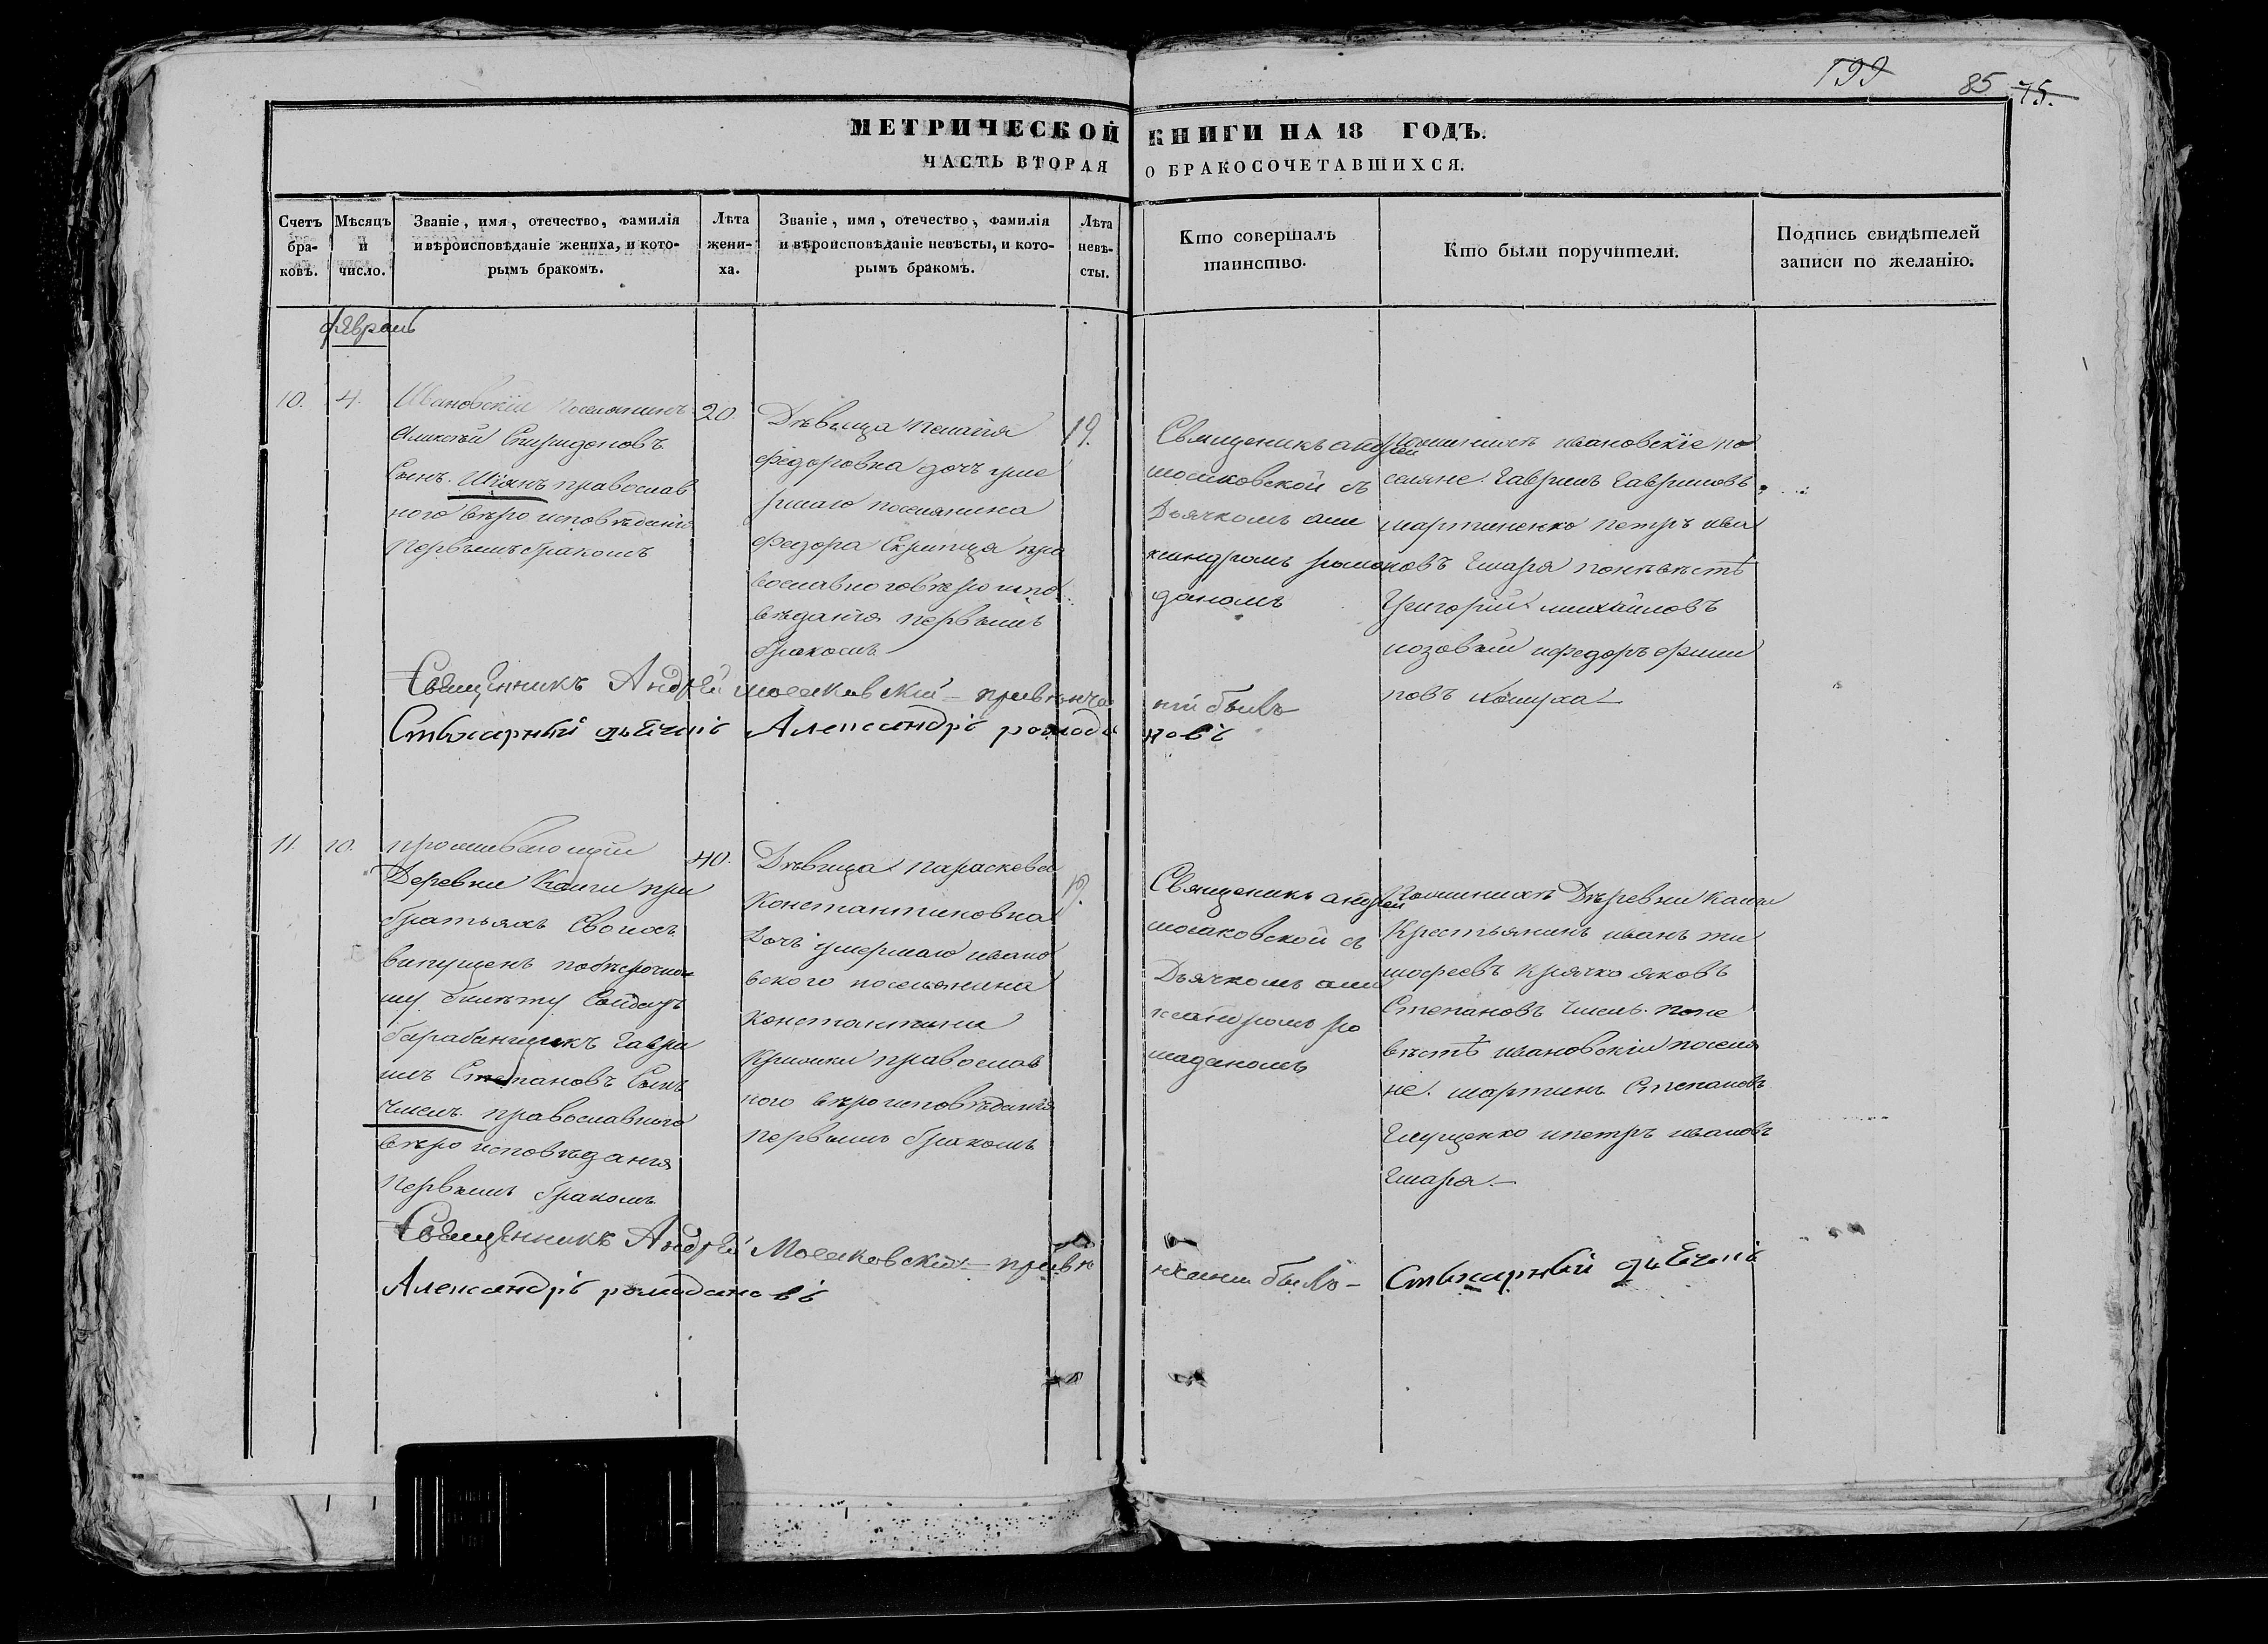 199 85 75.
МЕТРИЧЕСКОЙ КНИГИ НА 18 ГОДЪ.
ЧАСТЬ ВТОРАЯ О БРАКОСОЧЕТАВШИХСЯ.
Счетъ браковъ.
Мѣсяцъ и число.
Званіе, имя, отечество, фамилія
и вѣроисповѣданіе жениха, и кото-
рымъ бракомъ.
Лѣта
жени-
ха.
Званіе, имя, отечество, фамилія
и вѣроисповѣданіе невѣсты, и кото-
рымъ бракомъ.
Лѣта
невѣ-
сты.
Кто совершалъ
таинство.
Кто были поручители.
Подпись свидѣтелей
записи по желанію.
февраль
10.
4.
Ивановскій поселянинъ
Алексѣй Спиридоновъ
Сынъ Шіянъ православ
ного вѣро исповѣданія
первымъ бракомъ
20.
Дѣвица Пелагія
федоровна дочъ уме
ршаго поселянина
федора пра
вославного вѣро испо
вѣданія первымъ
бракомъ
19.
Священикъ андрей
мошковской съ
Дьячкомъ але
ксандромъ ромо
даномъ
ивановскіе по
селяне Гавриилъ Гавриловъ
мартиненко петръ ива
новъ Гмаря по невѣстѣ
Григорій михайловъ
лозовый и федоръ филип
повъ
Священникъ Андрей мошковскій - при вѣнча
ніи былъ
Стихарный дьячекъ Александръ ромода
новъ
11.
10.
проживающий
Деревни Каиги при
братьяхъ Своихъ
випущенъ по безсрочно
му билѣту
барабанщикъ Гаври
илъ Степановъ Сынъ
православного
вѣро исповѣданія
первымъ бракомъ
40.
Дѣвица Параскева
Константиновна
Дочъ умершаго ивано
вского поселянина
Константина
православ
ного вѣро исповѣданія
первымъ бракомъ
19.
Священикъ андрей
мошковской съ
Дьячкомъ але
ксандромъ ро
маданомъ
Дѣревни Каиги
Крестьянинъ иванъ ти
мофеевъ Крячко яковъ
Степановъ по не
вѣстѣ ивановскіи поселя
не мартинъ Степановъ
Глущенко и петръ ивановъ
Гмаря -
Священникъ Андрей Мошковскій - при вѣ
нчаніи былъ - Стихарный дьячекъ
Александръ ромодановъ